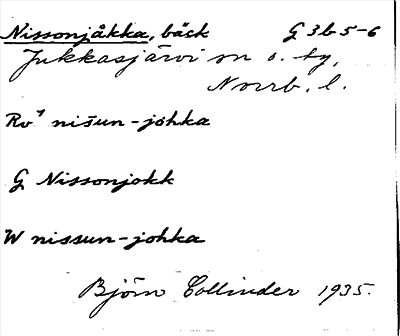 Nissonjåkka, bäck G 3b 5-6
Jukkasjärvi sn o. tg,
Norrb. l.
Rv⁴ nišun-johka
G Nissonjokk
W nissun-johka
Björn Collinder 1935.